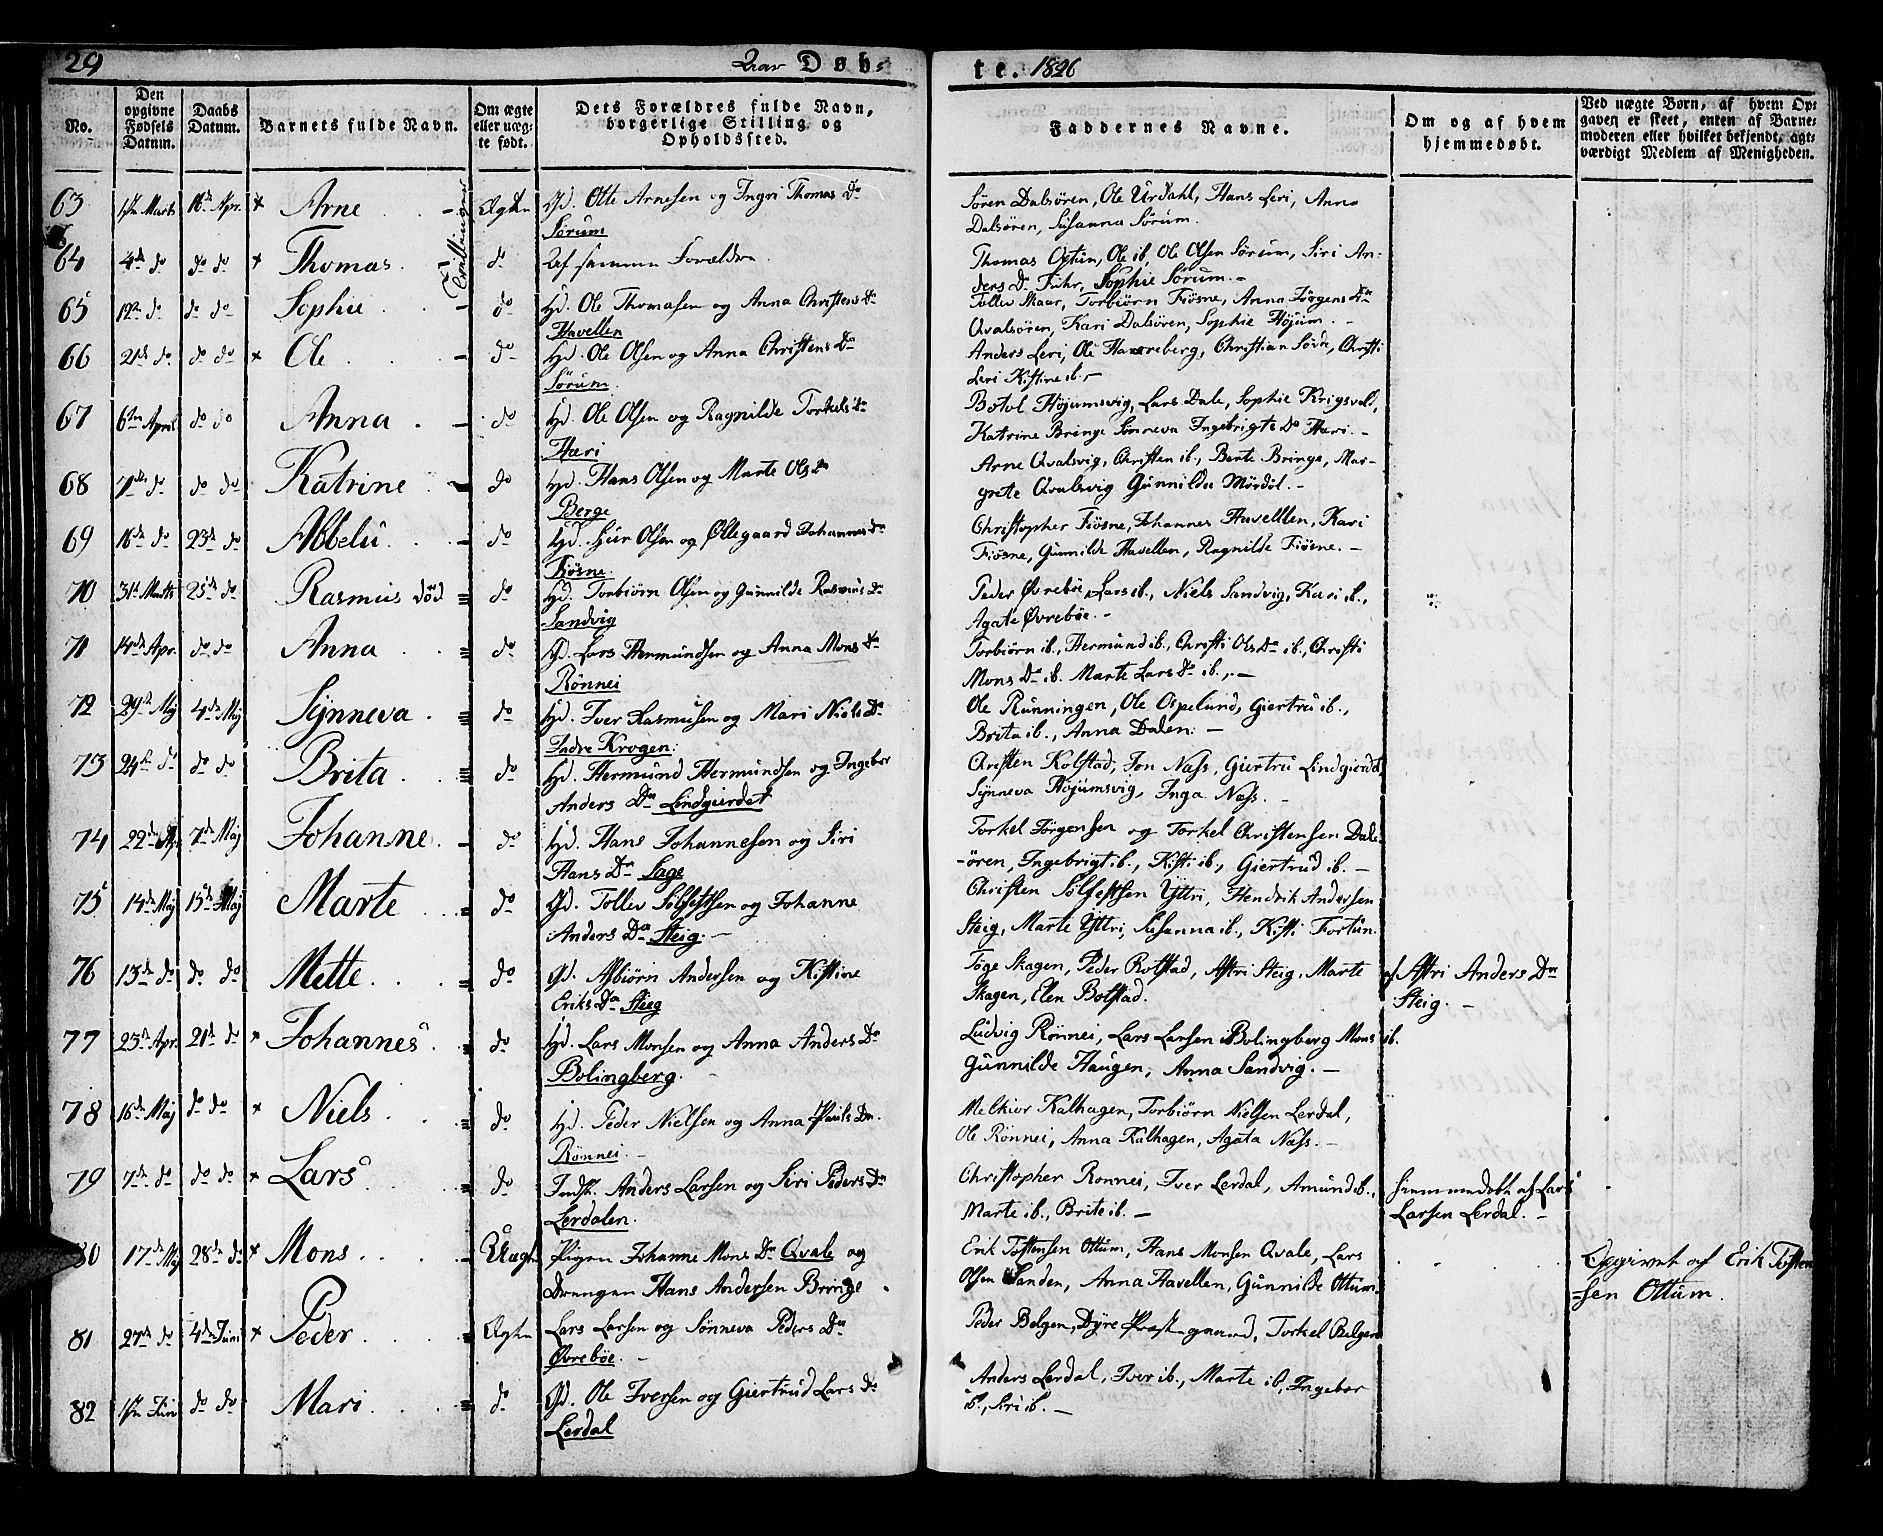 29
Døb-
te. 1826
No.
Den opgivne Fødsels Datum.
Daabs Datum.
Barnets fulde Navn.
Om ægte eller uægte født.
Dets Forældres fulde Navn, borgerlige Stilling og Opholdssted.
Faddernes Navne.
Om og af hvem hjemmedøbt.
Ved uægte Børn, af hvem Opgaven er skeet, enten af Barnemoderen eller hvilket bekjendt, agtværdigt Medlem af Menigheden.
Tvillinger
63 1ste Marts 16de Apr. × Arne Ægte Gd. Otte Arnesen og Ingri Thomas Dr
Sørum
Søren Dalsören, Ole Urdahl, Hans Leri, Anna
Dalsören, Susanna Sørum.
64 4de do do do × Thomas do Af samme Forældre
Thomas Ottun, Ole ib, Ole Olsen Sörum, Siri An-
ders Dr Fuhr, Sophie Sörum.-
65 12te do do do Sophie do Hd. Ole Thomasen og Anna Christens Dr
Havellen
Tollev Skaar, Torbiörn Fiösne, Anna Jörgens Dr
Qvalsören, Kari Dalsören, Sophie Höjum.-
66 21de do do do × Ole do Hd. Ole Olsen og Anna Christens Dr
Sörum.
Anders Leri, Ole Hanreberg, Christian Sövde, Christi
Leri Kistine ib.-
67 6te April do do Anna do Hd. Ole Olsen og Ragnilde Torkels Dr
Hæri
Botol Höjumsvig, Lars Dale, Sophie Krigsvold,
Katrine Bringe Sönneva Ingebrigts Dr Hæri.-
68 7de do do do Katrine do Hd. Hans Olsen og Marte Ols Dr
Berge
Arne Qvalsvig, Christen ib., Berte Bringe, Mar-
grete Qvalsvig Gunnilde Mördöl.-
69 16de do 23de do Abbelu do Hd. Siur Olsen og Øllegaard Johannes Dr
Fiösne.
Christopher Fiösne, Johannes Havelllen, Kari
Fiösne, Gunnilde Havellen, Ragnilde Fiösne.-
70 31te Marts 25de do Rasmus död do Hd. Torbiörn Olsen og Gunnilde Rasmus Dr
Sandvig
Peder Øvrebøe, Lars ib., Niels Sandvig, Kari ib.,
Agate Øvrebøe.-
71 14de Apr. do do Anna do Gd. Lars Hermundsen og Anna Mons Dr
Rönnei
Torbiörn ib., Hermund ib., Christi Ols Dr ib., Christi
Mons Dr ib. Marte Lars Dr ib.,-
72 29de Maj 4de Maj Synneva do Hd. Iver Rasmusen og Mari Niels Dr
Indre Krogen.
Ole Runningen, Ole Ospelund, Giertru ib.,
Brita ib., Anna Dalen.-
73 24de do do do Brita do Hd. Hermund Hermundsen og Ingebor
Anders Dr Lindgierdet
Christen Kolstad, Jon Næss, Giertru Lindgierdet
Synneva Höjumsvig, Inga Næss.
74 22de Apr. 7de Maj Johanne do Hd. Hans Johannesen og Siri
Hans Dr Lage
Torkel Jörgensen og Torkel Christensen Dals-
-ören, Ingebrigt ib., Kisti ib., Giertrud ib.-
75 14de Maj 15de Maj Marte do Gd. Tollev Solfestsen og Johanne
Anders Dr Steig.-
Christen Solfestsen Yttri, Hendrik Andersen
Steig, Marte Yttri, Susanna ib., Kisti Fortun.
76 13de do do do Mette do Gd. Asbiörn Andersen og Kistine
Eriks Dr Steig
Töge Skagen, Peder Rotstad, Astri Steig, Marte
Skagen, Elen Bolstad.
af Astri Anders Dr
Steig.-
77 23de Apr. 21de do × Johannes do Hd. Lars Monsen og Anna Anders Dr
Bolingberg.
Ludvig Rönnei, Lars Larsen Bolingberg Mons ib.
Gunnilde Haugen, Anna Sandvig.-
78 16de Maj do do × Niels do Hd. Peder Nielsen og Anna Pauls Dr.
Rönnei.-
Melkior Kalhagen, Torbiörn Nielsen Lerdal,
Ole Rönnei, Anna Kalhagen, Agata Næss.-
79 7de do do do × Lars do Indst. Anders Larsen og Siri Peders Dr
Lerdalen.
Christopher Ronnei, Iver Lerdal, Amund ib.,
Marte ib., Brite ib.-
hiemmedöbt af Lars
Larsen Lerdal.-
80 17de Maj 28de do × Mons Uægte Pigen Johanne Mons Dr Qvale og
Drengen Hans Andersen Bringe
Erik Tostensen Ottum, Hans Monsen Qvale, Lars
Olsen Sanden, Anna Havellen, Gunnilde Ottum.
Opgivet af Erik Tosten
-sen Ottum.
81 27de do 4de Juni × Peder Ægte Lars Larsen og Sönneva Peders Dr
Øvrebøe.-
Peder Bolgen, Dyre Præstegaard, Torkel Bolgen
82 1ste Juni do do Mari do Gd. Ole Iversen og Giertrud Lars Dr
Lerdal
Anders Lerdal, Iver ib., Marte ib, Ingebor
ib., Siri ib.-